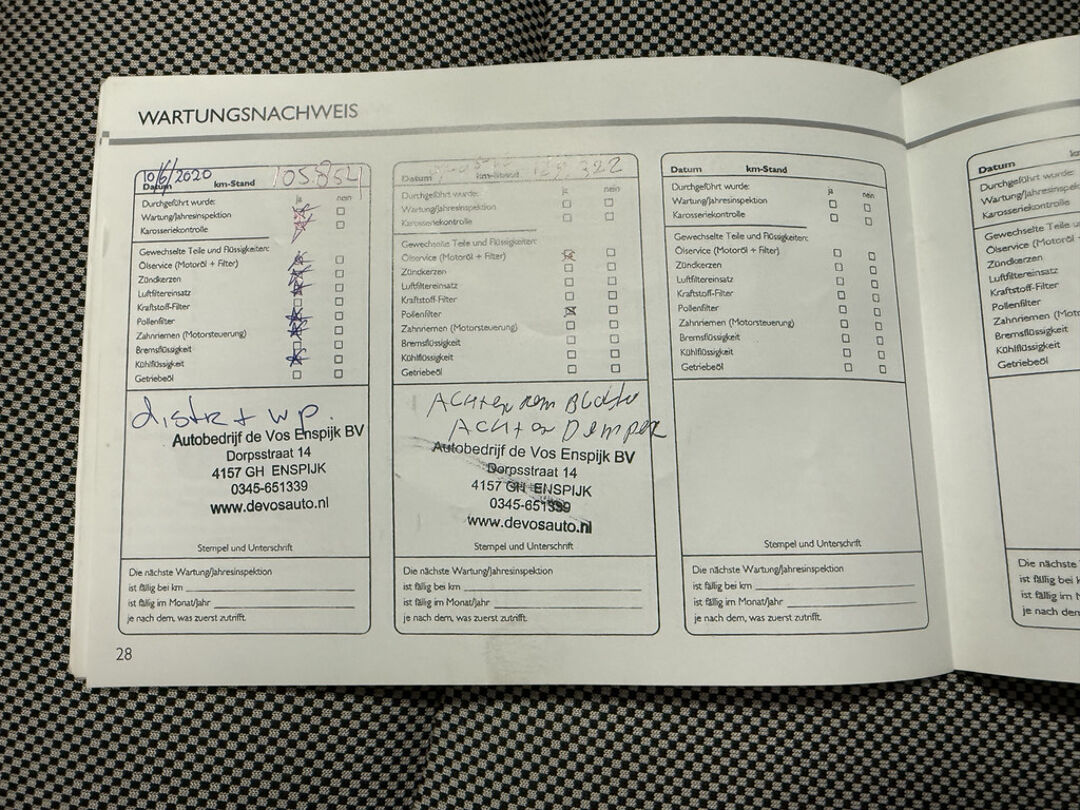 WARTUNGSNACHWEIS
10/6/2020 105.854
Datum km-Stand
Durchgeführt wurde: ja nein
Wartung/Jahresinspektion
Karosseriekontrolle
Gewechselte Teile und Flüssigkeiten:
Ölservice (Motoröl + Filter)
Zündkerzen
Luftfiltereinsatz
Kraftstoff-Filter
Pollenfilter
Zahnriemen (Motorsteuerung)
Bremsflüssigkeit
Kühlflüssigkeit
Getriebeöl
distr + wp.
Autobedrijf de Vos Enspijk BV
Dorpsstraat 14
4157 GH ENSPIJK
0345-651339
www.devosauto.nl
Stempel und Unterschrift
Die nächste Wartung/Jahresinspektion
ist fällig bei km
ist fällig im Monat/Jahr
je nach dem, was zuerst zutrifft.
28
Datum km-Stand
Durchgeführt wurde: ja nein
Wartung/Jahresinspektion
Karosseriekontrolle
Gewechselte Teile und Flüssigkeiten:
Ölservice (Motoröl + Filter)
Zündkerzen
Luftfiltereinsatz
Kraftstoff-Filter
Pollenfilter
Zahnriemen (Motorsteuerung)
Bremsflüssigkeit
Kühlflüssigkeit
Getriebeöl
Achter rem
Achter Demper
Autobedrijf de Vos Enspijk BV
Dorpsstraat 14
4157 GH ENSPIJK
0345-651339
www.devosauto.nl
Stempel und Unterschrift
Die nächste Wartung/Jahresinspektion
ist fällig bei km
ist fällig im Monat/Jahr
je nach dem, was zuerst zutrifft.
Datum km-Stand
Durchgeführt wurde: ja nein
Wartung/Jahresinspektion
Karosseriekontrolle
Gewechselte Teile und Flüssigkeiten:
Ölservice (Motoröl + Filter)
Zündkerzen
Luftfiltereinsatz
Kraftstoff-Filter
Pollenfilter
Zahnriemen (Motorsteuerung)
Bremsflüssigkeit
Kühlflüssigkeit
Getriebeöl
Stempel und Unterschrift
Die nächste Wartung/Jahresinspektion
ist fällig bei km
ist fällig im Monat/Jahr
je nach dem, was zuerst zutrifft.
Datum
Durchgeführt wurde:
Wartung/Jahresinspek
Karosseriekontrolle
Gewechselte Teile u
Ölservice (Motoröl
Zündkerzen
Luftfiltereinsatz
Kraftstoff-Filter
Pollenfilter
Zahnriemen (Moto
Bremsflüssigkeit
Kühlflüssigkeit
Getriebeöl
Die nächste
ist fällig bei k
ist fällig im M
je nach dem